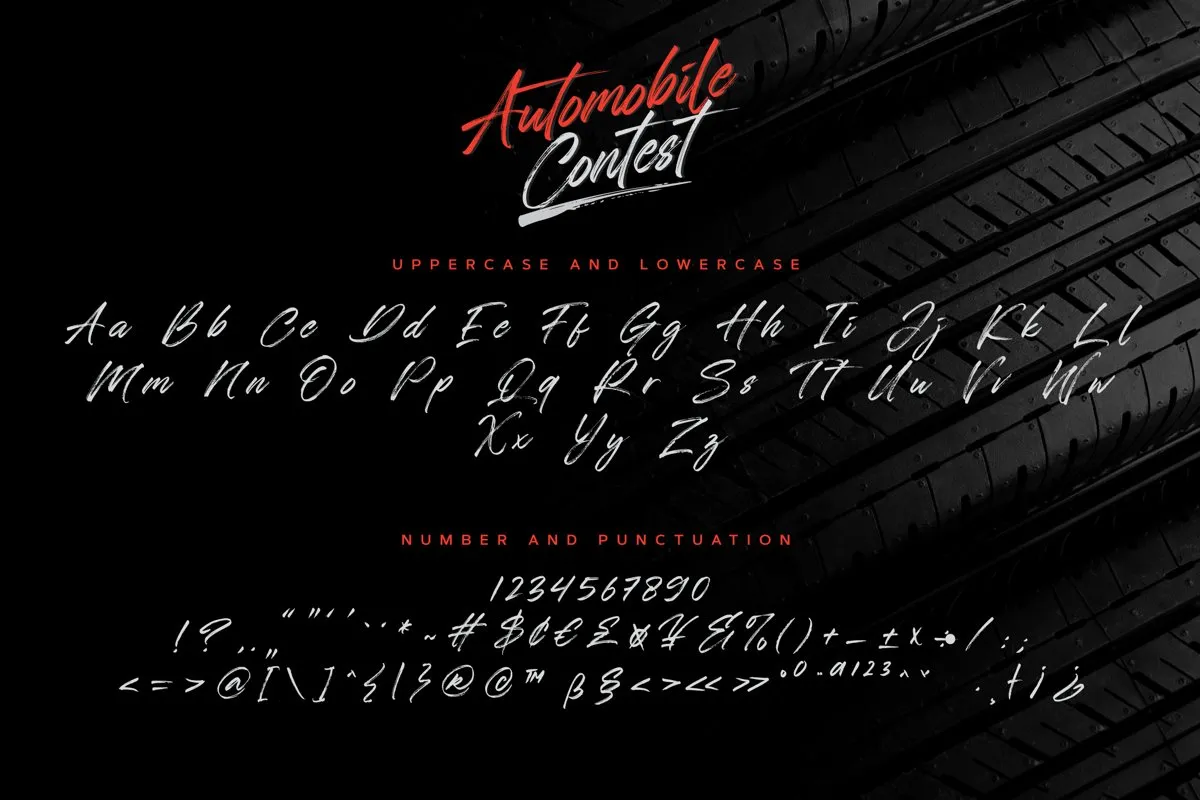 Automobile
Contest
UPPERCASE AND LOWERCASE
Aa Bb Cc Dd Ee Ff Gg Hh Ii Jj Kk Ll
Mm Nn Oo Pp Qq Rr Ss Tt Uu Vv Ww
Xx Yy Zz
NUMBER AND PUNCTUATION
1234567890
!?.,„“”‘’*~#$¢€£¤¥&%()+–±×÷/:;
<=>@[\]^{|}®©™ß§<>«»°º¨ª123^ˇ·¸†¡¿